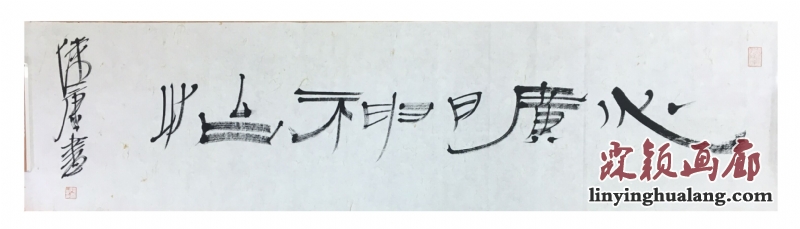 心曠神怡
霖颖画廊
linyinghualang.com